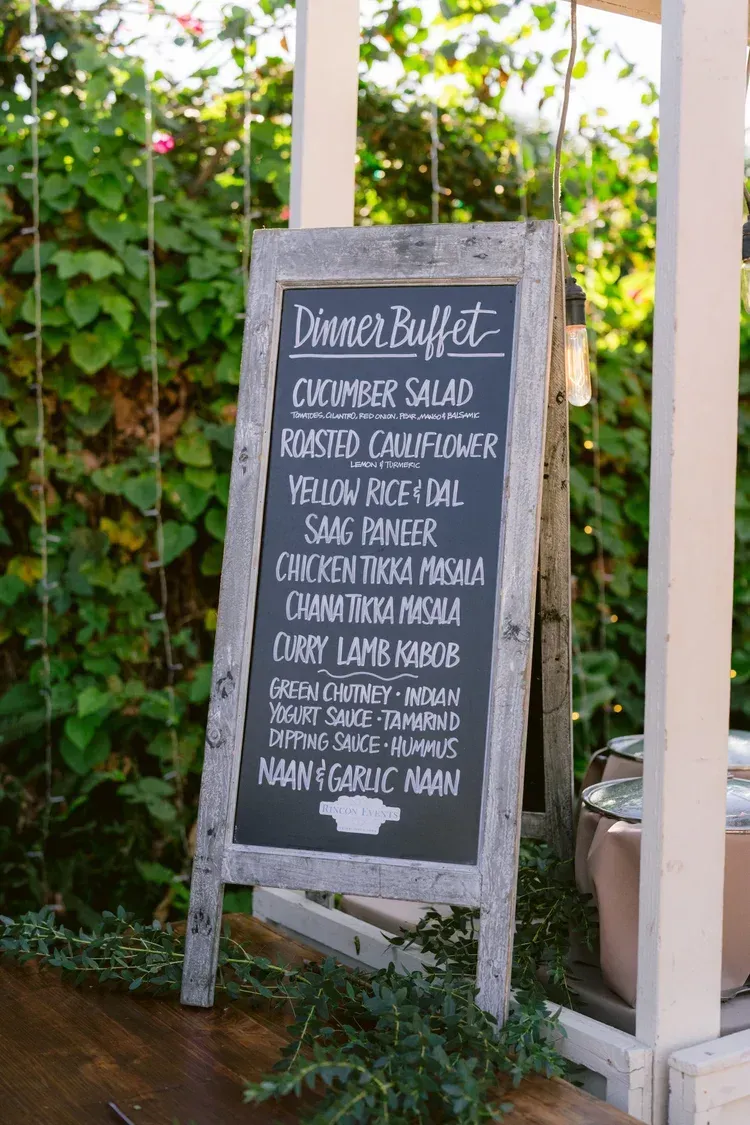 Dinner Buffet
CUCUMBER SALAD
TOMATOES, CILANTRO, RED ONION, PEAR, MANGO & BALSAMIC
ROASTED CAULIFLOWER
LEMON & TURMERIC
YELLOW RICE & DAL
SAAG PANEER
CHICKEN TIKKA MASALA
CHANA TIKKA MASALA
CURRY LAMB KABOB
GREEN CHUTNEY • INDIAN
YOGURT SAUCE • TAMARIND
DIPPING SAUCE • HUMMUS
NAAN & GARLIC NAAN
RINCON EVENTS